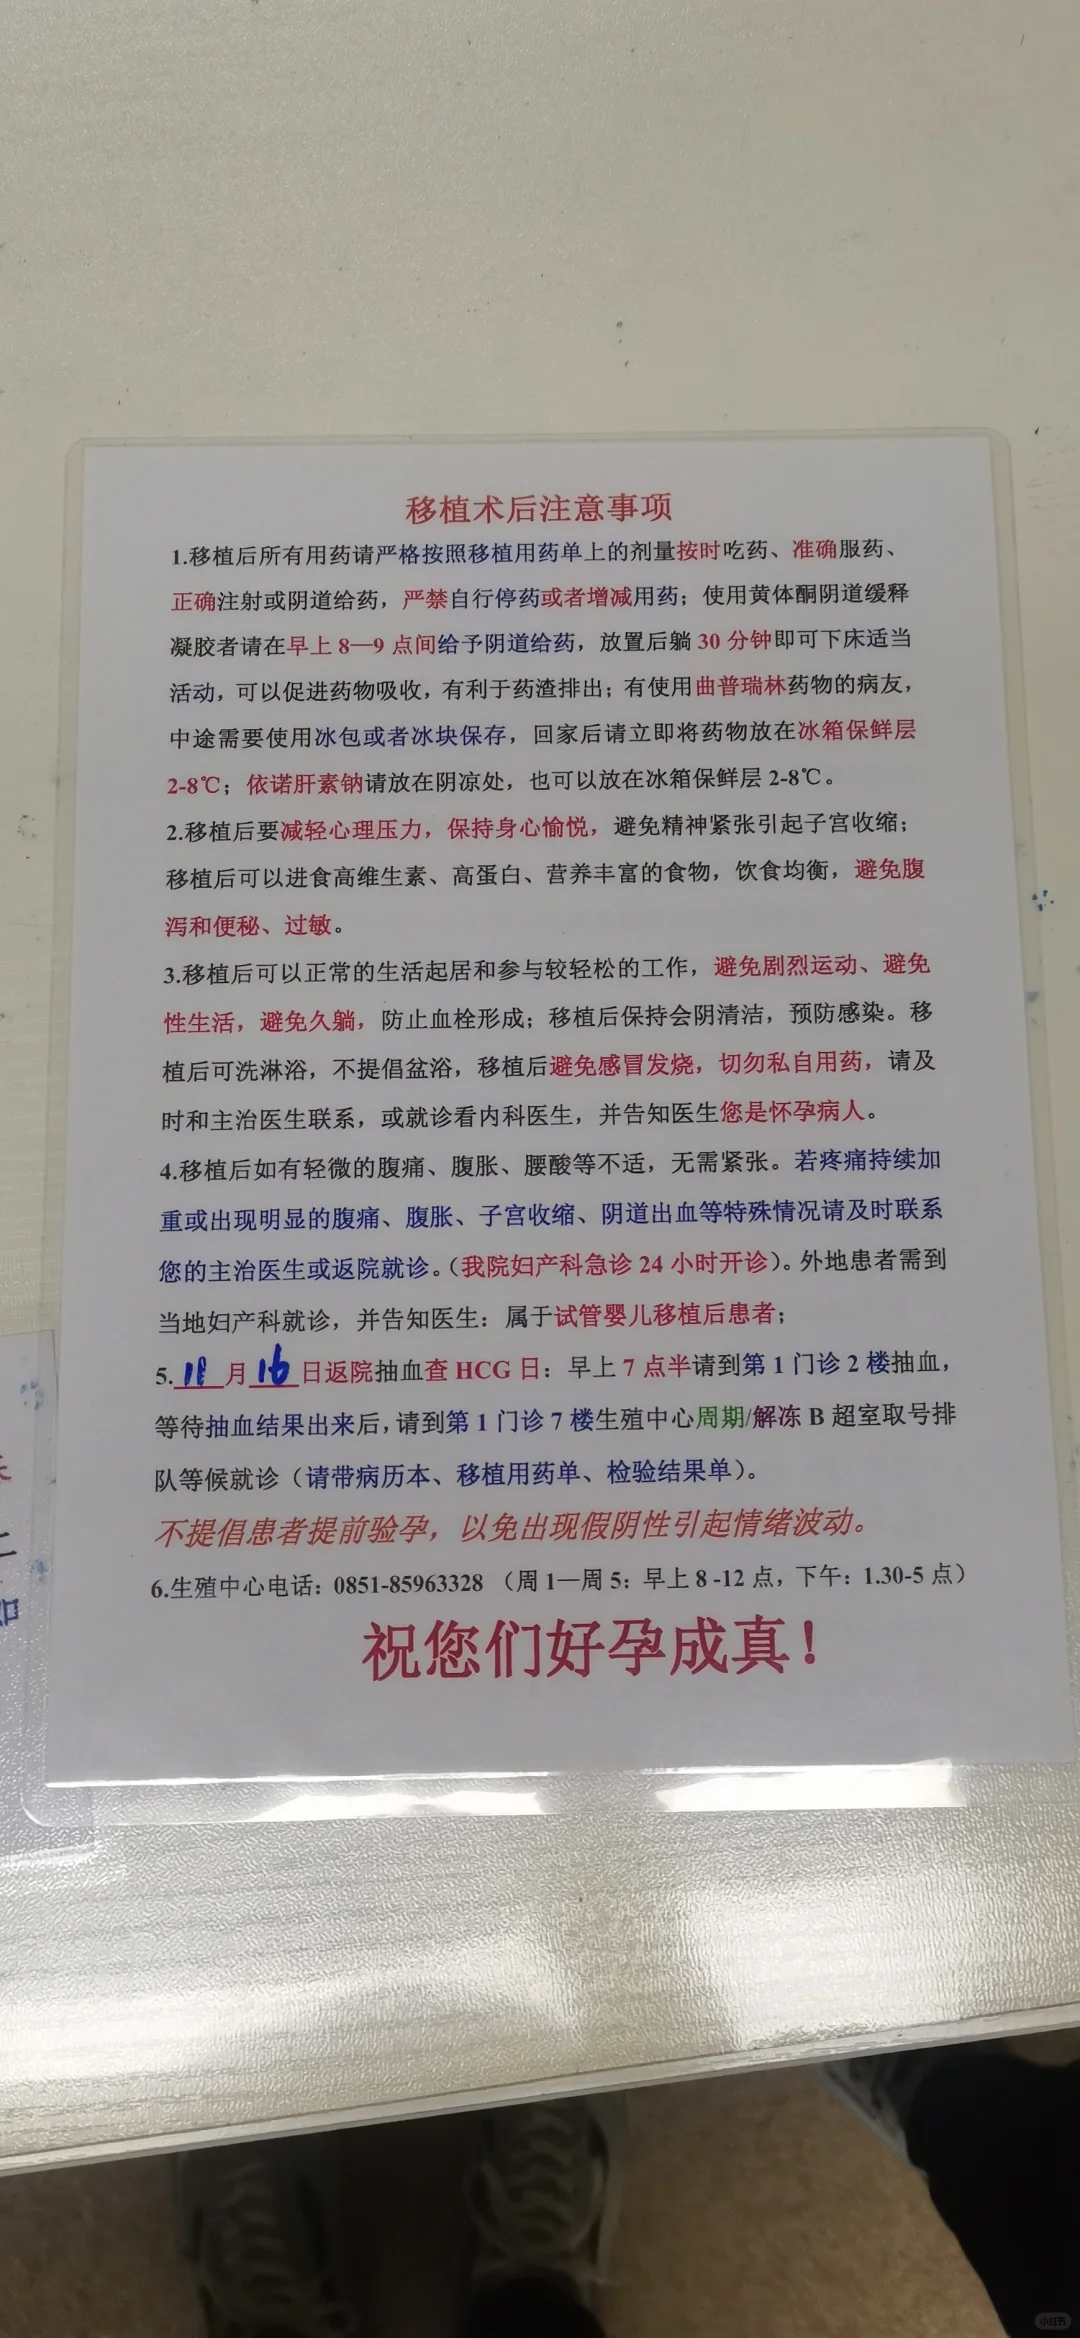 移植术后注意事项
1.移植后所有用药请严格按照移植用药单上的剂量按时吃药、准确服药、
正确注射或阴道给药，严禁自行停药或者增减用药；使用黄体酮阴道缓释
凝胶者请在早上 8—9 点间给予阴道给药，放置后躺 30 分钟即可下床适当
活动，可以促进药物吸收，有利于药渣排出；有使用曲普瑞林药物的病友，
中途需要使用冰包或者冰块保存，回家后请立即将药物放在冰箱保鲜层
2-8℃；依诺肝素钠请放在阴凉处，也可以放在冰箱保鲜层 2-8℃。
2.移植后要减轻心理压力，保持身心愉悦，避免精神紧张引起子宫收缩；
移植后可以进食高维生素、高蛋白、营养丰富的食物，饮食均衡，避免腹
泻和便秘、过敏。
3.移植后可以正常的生活起居和参与较轻松的工作，避免剧烈运动、避免
性生活，避免久躺，防止血栓形成；移植后保持会阴清洁，预防感染。移
植后可洗淋浴，不提倡盆浴，移植后避免感冒发烧，切勿私自用药，请及
时和主治医生联系，或就诊看内科医生，并告知医生您是怀孕病人。
4.移植后如有轻微的腹痛、腹胀、腰酸等不适，无需紧张。若疼痛持续加
重或出现明显的腹痛、腹胀、子宫收缩、阴道出血等特殊情况请及时联系
您的主治医生或返院就诊。（我院妇产科急诊 24 小时开诊）。外地患者需到
当地妇产科就诊，并告知医生：属于试管婴儿移植后患者；
5. 月 16 日返院抽血查 HCG 日：早上 7 点半请到第 1 门诊 2 楼抽血，
等待抽血结果出来后，请到第 1 门诊 7 楼生殖中心周期/解冻 B 超室取号排
队等候就诊（请带病历本、移植用药单、检验结果单）。
不提倡患者提前验孕，以免出现假阴性引起情绪波动。
6.生殖中心电话：0851-85963328 （周 1—周 5：早上 8 -12 点，下午：1.30-5 点）
祝您们好孕成真！
小红书